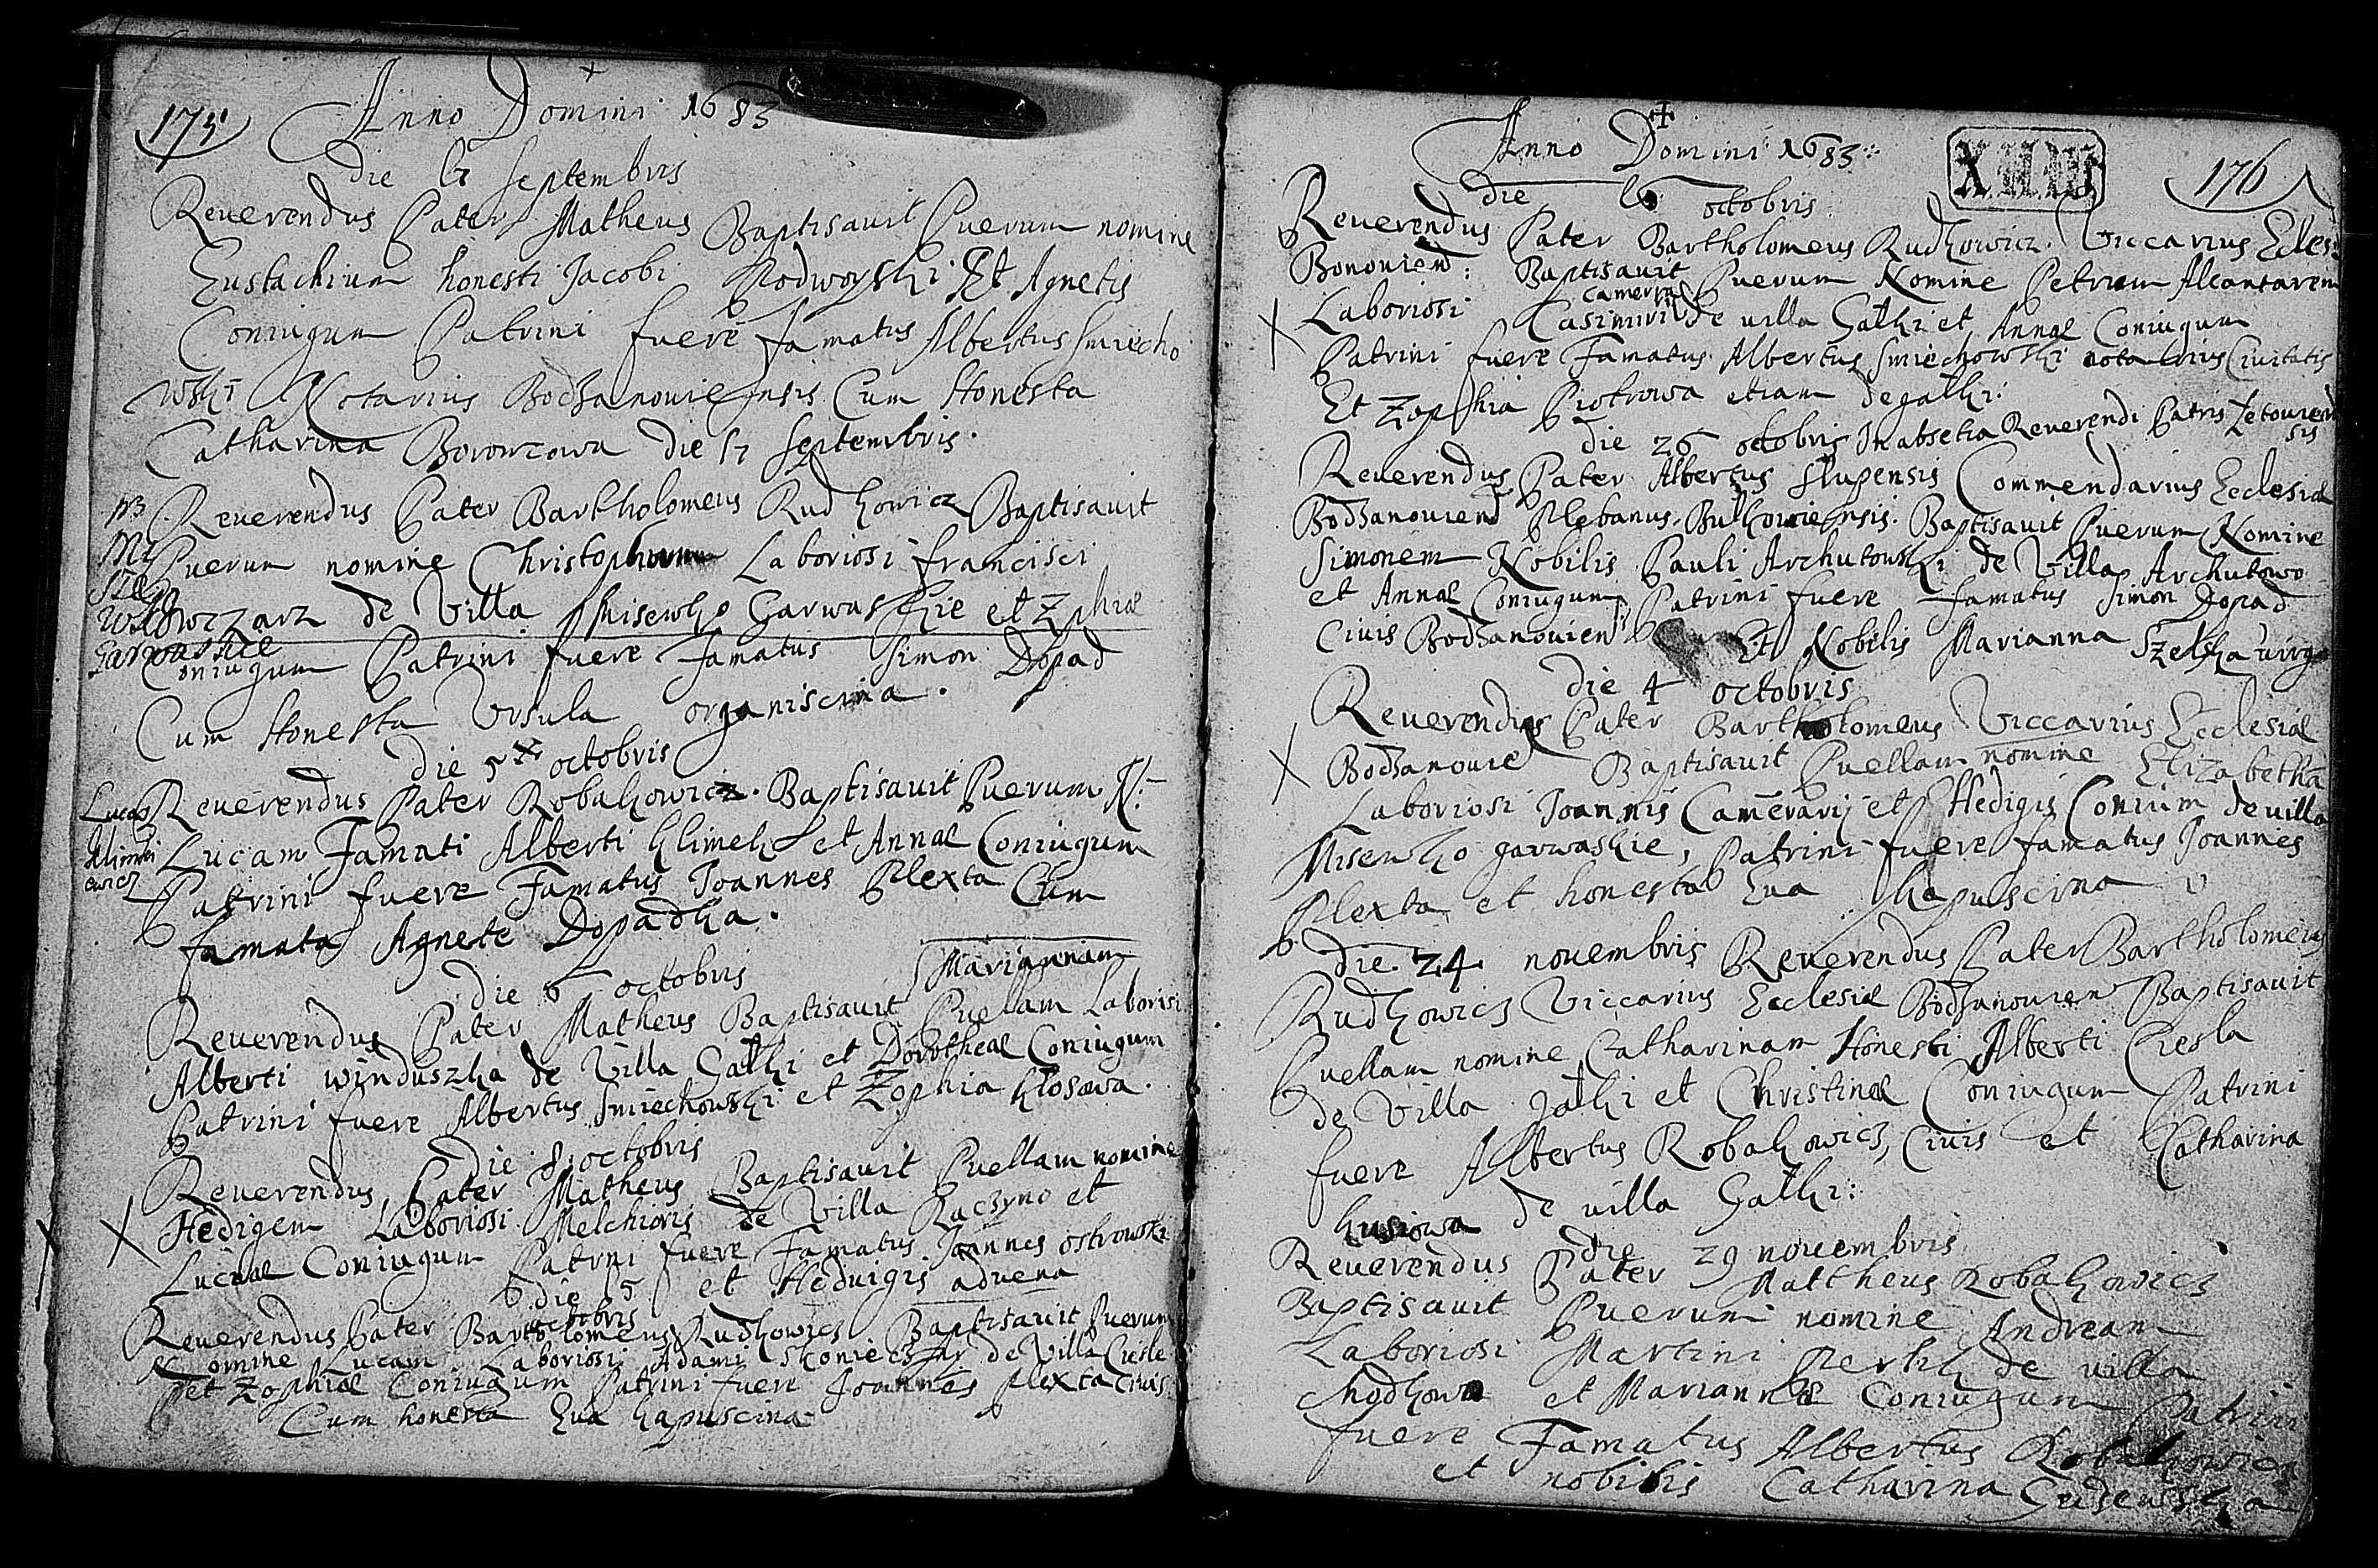 175
Anno Domini 1683
die septembris
Reuerendus Pater Matheus Baptisauit Puerum nomine
Eustachium honesti Jacobi Podwoyski Et Agnetis
Coniugum Patrini fuere famatus Albertus Smiecho
wski Notarius Bodzanouiensis Cum Honesta
Catharina Borowcowa die septembris
Reuerendus Pater Bartholomeus Rudkowicz Baptisauit
Puerum nomine Christophorum Laboriosi francisci
Owczarz de Villa Misewko Garwaskie et Zophiæ
Coniugum Patrini fuere famatus Simon Dopad
Cum Honesta Vrsula organiscina.
die 5 octobris
Reuerendus Pater Robakowicz. Baptisauit Puerum N:
Lucam Famati Alberti Klimek et Annæ Coniugum
Patrini fuere Famatus Joannes Plexta Cum
famata Agnete Dopadka.
die 6 octobris
Mariannam
Reuerendus Pater Matheus Baptisauit Puellam Laborisi
Alberti winduszka de Villa Gałki et Dorotheæ Coniugum
Patrini fuere Albertus Smiechowski et Zophia Kłosowa.
die 8 octobris
Reuerendus Pater Matheus Baptisauit Puellam nomine
Hedigem Laboriosi Melchioris de Villa Raczyno et
Luciæ Coniugum Patrni fuere Famatus Joannes ostrowski
die 5 et Heduigis aduena
octobris
Reuerendus Pater Bartolomeus Rudkowics Baptisauit Puerum
Nomine Lucam Laboriosi Adami Skonieczny de Villa Ciesle
et Zophiæ Coniugum Patrini fuere Joannes plexta Ciuis
Cum honesta Eua kapuscina
My
szew
Garwaskie
Lucas
Klimki
ewicz
176
Anno Domini 1683
die 6 octobris
Reuerendus Pater Bartholomeus Rudkowicz. Viccarius Ecles:
Bonouien: Baptisauit Puerum Nomine Petrum Alcantarem
Laboriosi Casimiri de villa Gałki et Annæ Coniugum
Patrini fuere Famatus Albertus Smiechowski notarius Ciuitatis
Et Zophia Piotrowa etiam de gałki.
die 26 octobris In absetia Reuerendi Patris
Reuerendus Pater Albertus slupensis Commendarius Ecclesiæ
Bodzanouien Plebanus Bulkowiensis. Baptisauit Puerum Nomine
Simonem Nobilis Pauli Archutowski de Villa Archutowo
et Annæ Coniugum Patrini fuere famatus Simon Dopad
Ciuis Bodzanouien Et Nobilis Marianna virgo
die 4 octobris
Reuerendus Pater Bartholomeus Viccarius Ecclesiæ
Bodzanouie Baptisauit Puellam nomine Elizabetha
Laboriosi Joannis Camerarij et Hedigis Conium de villa
Misewko garwaskie, Patrini fuere famatus Joannes
Plexta et honesta Eua kapuscina
die 24 nouembris Reuerendus Pater Bartholomeus
Rudkowicz Viccarius Ecclesiæ Bodzanouien Baptisauit
Puellam nomine Catharinam Honesti Alberti Ciesla
de Villa gałki et Christinæ Coniugum Patrini
fuere Albertus Robakowicz, Ciuis et Catharina
kusiowa de villa Gałki:
die 29 nouembris
Reuerendus Pater Mattheus Robakowicz
Baptisauit Puerum nomine Andream
Laboriosi Martini Pertek de villa
Chodkowo et Mariannæ Coniugum Patrini
fuere Famatus Albertus Robakowicz
et nobilis Catharina